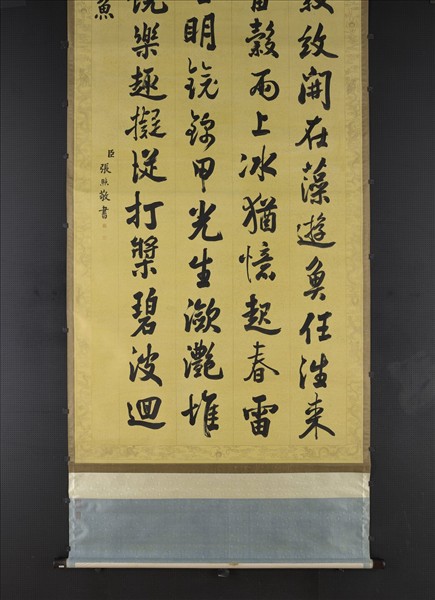 紋開在藻遊魚任往来
穀雨上冰猶憶起春雷
明鏡錦甲光生瀲灩堆
樂趣擬從打槳碧波迴
魚
臣張照敬書